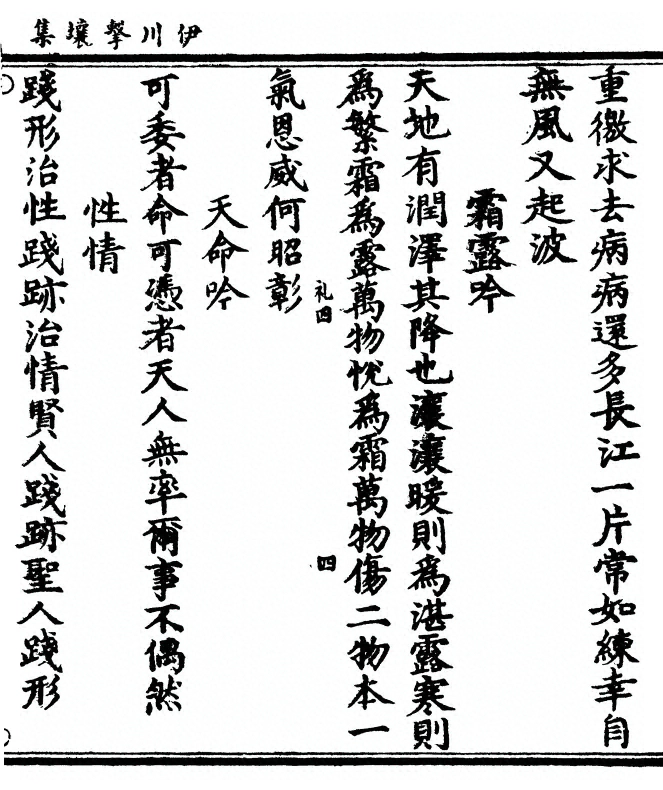 伊川擊壤集
重徼求去病病還多長江一片常如練幸自
無風又起波
霜露吟
天地有潤澤其降也瀼瀼暖則爲湛露寒則
爲繁霜爲露萬物悅爲霜萬物傷二物本一
氣恩威何昭彰
礼四
四
天命吟
可委者命可憑者天人無率爾事不偶然
性情
踐形治性踐跡治情賢人踐跡聖人踐形